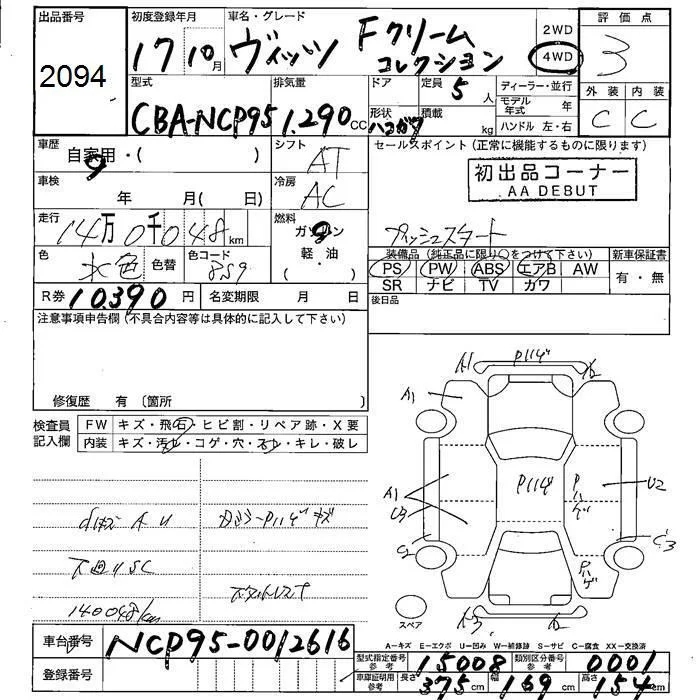 出品番号
2094
初度登録年月
17 10月
車名・グレード
ヴィッツ Fクリーム
コレクション
2WD
4WD
評価点
3
型式
CBA-NCP95
排気量
1.290cc
ドア
形状
定員
5人
積載
kg
ディーラー・並行
モデル年式 年
ハンドル 左・右
外装 内装
C C
車歴
自家用・( )
シフト
AT
セールスポイント(正常に機能するものに限ります)
初出品コーナー
AA DEBUT
車検
年 月( 日)
冷房
AC
走行
14万0千048km
燃料
ガソリン
(軽・油)
色
水色
色替
色コード
8S9
装備品(純正品に限り○をつけて下さい)
PS PW ABS エアB AW
SR ナビ TV カワ
新車保証書
有・無
R券 10.390円
名変期限 月 日
後日品
注意事項申告欄(不具合内容等は具体的に記入して下さい)
修復歴 有 〔箇所 〕
検査員
記入欄
FW キズ・飛石・ヒビ割・リペア跡・X要
内装 キズ・汚レ・コゲ・穴・スレ・キレ・破レ
下廻りSC
140048km
A1 Pハゲ A2
A1
A1
U3
C2
Pハゲ
Pハゲ
U2
C3
Pハゲ
A3 A2
スペア
A−キズ E−エクボ U−凹み W−補修跡 S−サビ C−腐食 XX−交換済
車台番号
NCP95-0012616
登録番号
型式指定番号
参考
15008
類別区分番号
参考
0001
車庫証明用
参考
長さ 375cm
幅 169cm
高さ 154cm